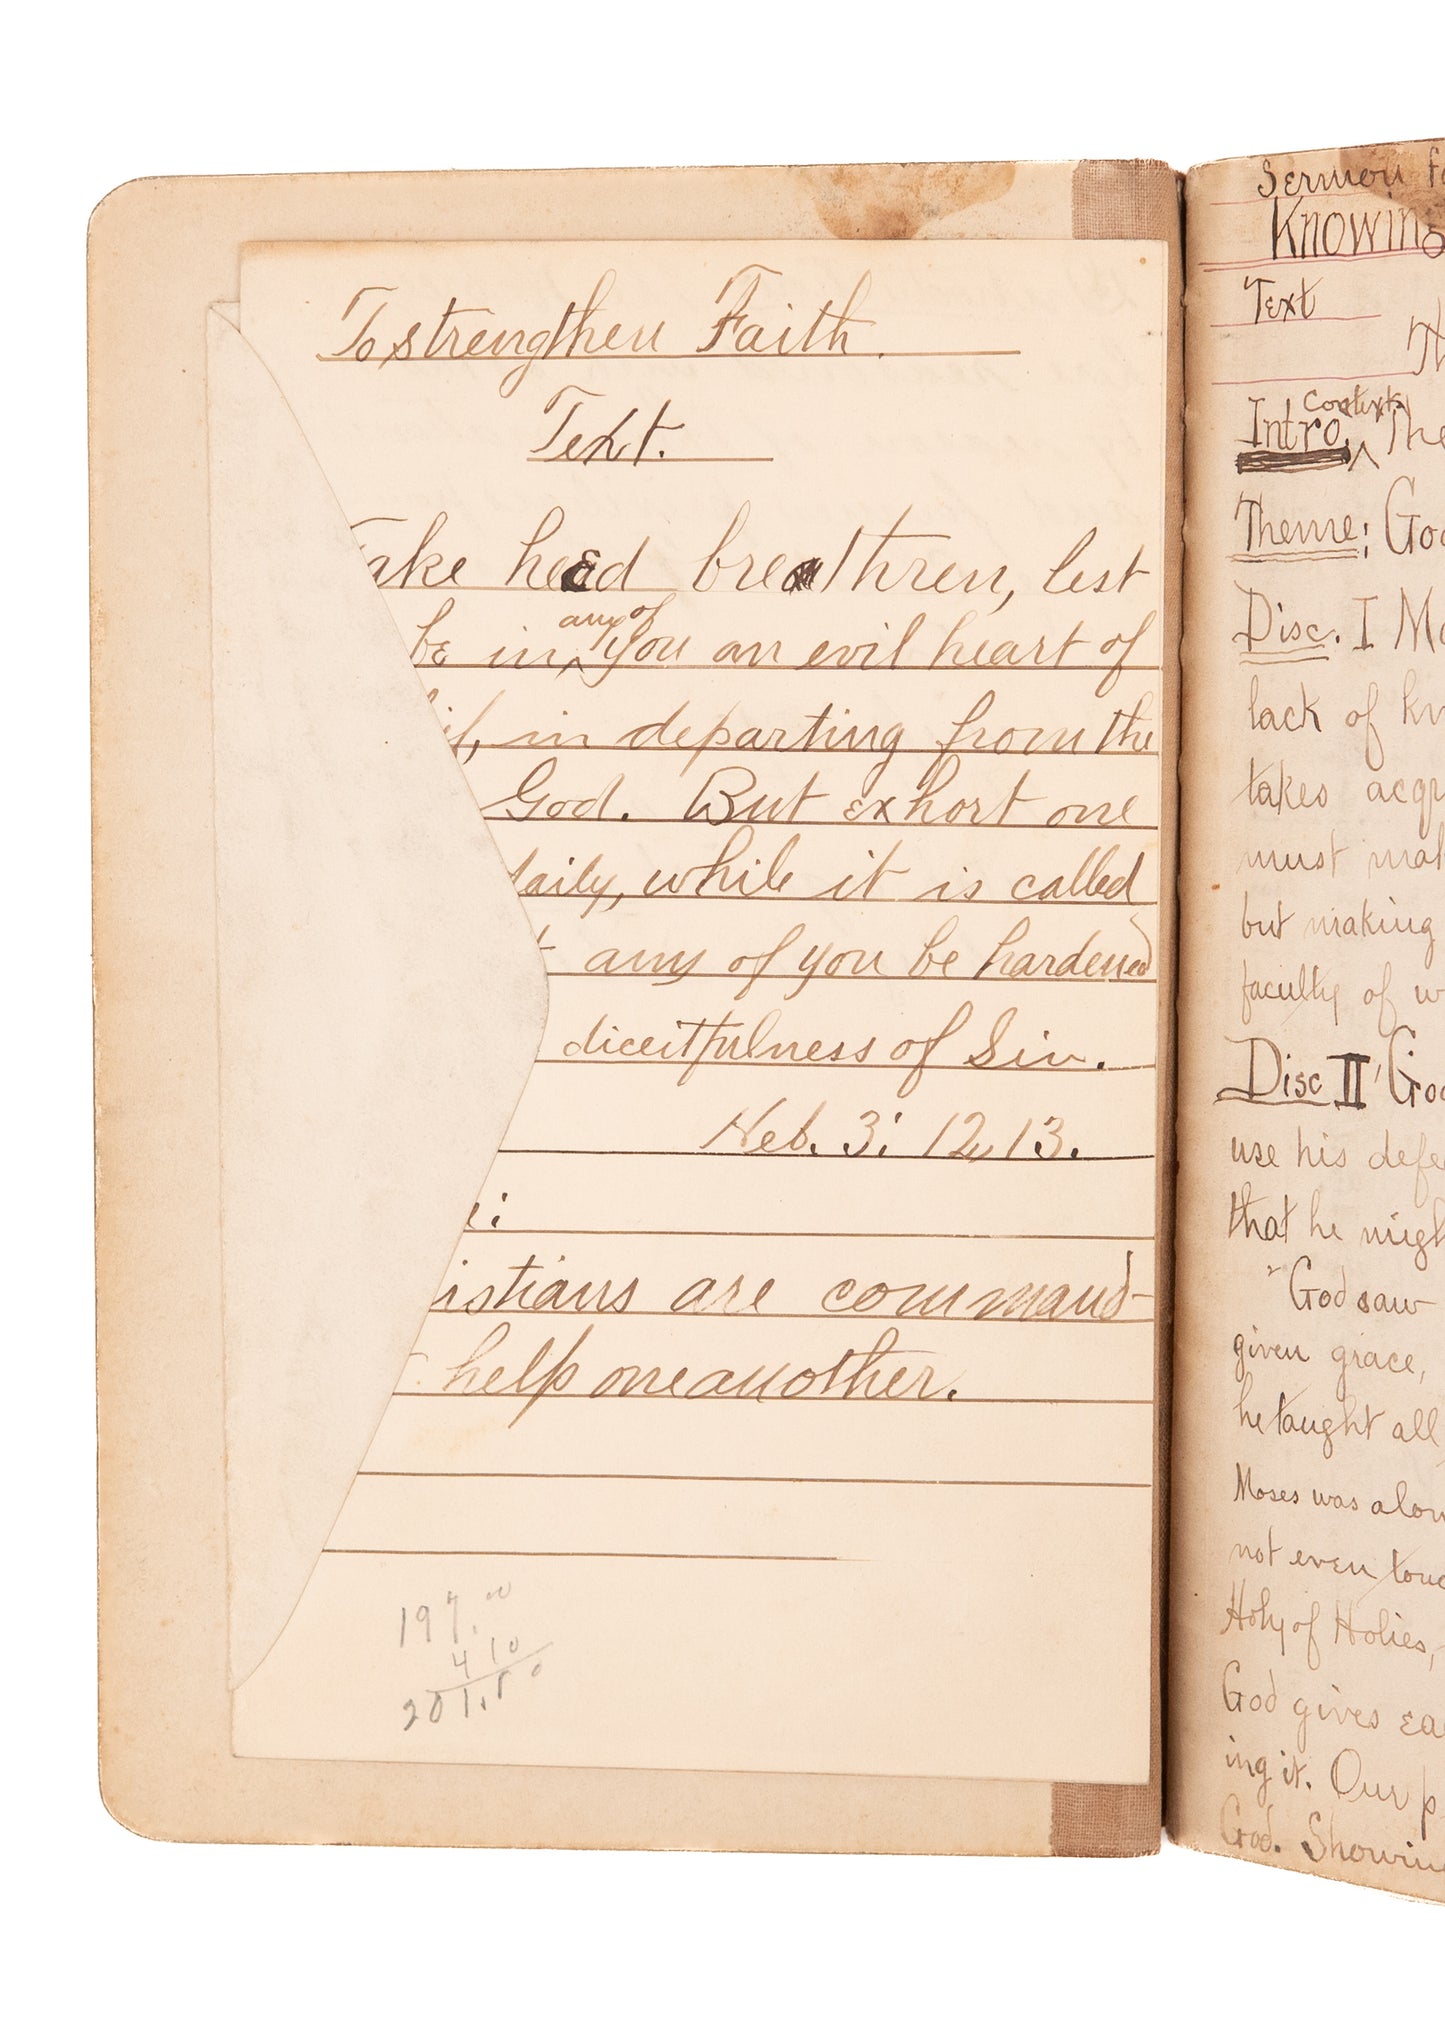 To strengthen Faith.
Text.
Take heed breathren, lest
be in any of you an evil heart of
in departing from the
God. But exhort one
daily, while it is called
any of you be hardened
diceitfulness of Sin.
Heb. 3: 12, 13.
istians are command-
help one another.
197.00
4 10
201.10
Sermon fo
Knowing
Text
Th
Intro. Context. The
Theme: Go
Disc. I Mo
lack of kn
takes acqu
must mak
but making
faculty of w
Disc II God
use his defe
that he migh
"God saw
given grace,
he taught all
Moses was alon
not even touc
Holy of Holies,
God gives ea
ing it. Our p
God. Showin